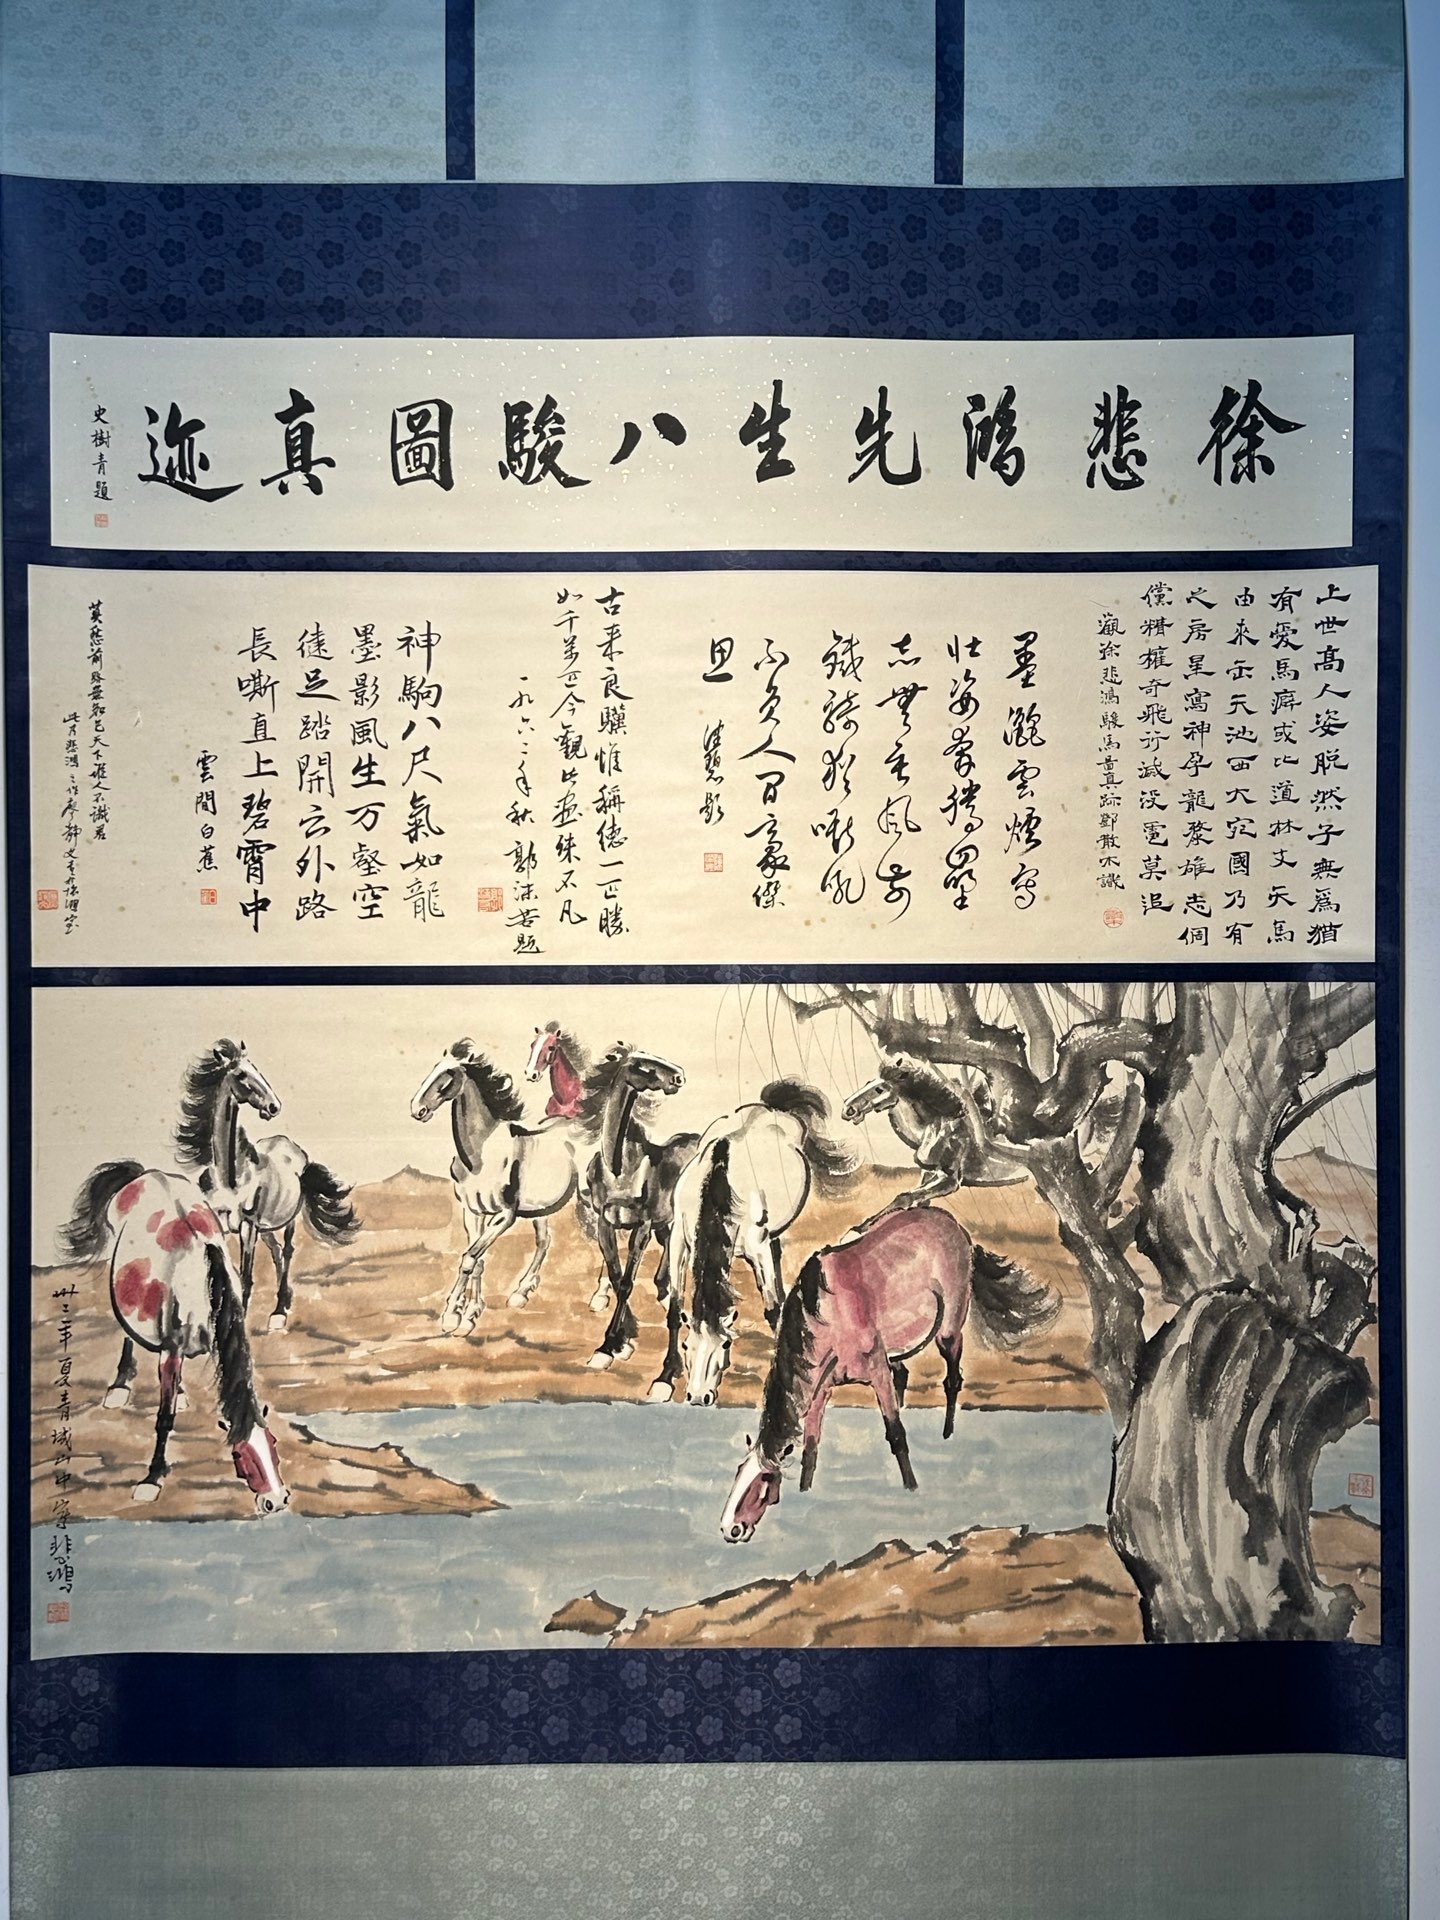 徐悲鴻先生八駿圖真迹
史樹青題
上世高人姿脫然子無爲猶
有愛馬癖或比道林支天馬
由來出天池西大宛國乃有
之房星寫神孕龍發雄志倜
儻精權奇飛行滅沒電莫追
觀徐悲鴻駿馬圖真跡鄧散木識
墨瀋雲煙寫
壯姿奔騰
志無垂風
鐵騎
不負人間豪傑
思
古来良驥惟稱德一匹勝
如千萬匹今觀此畫殊不凡
一九六二年秋郭沫若題
神駒八尺氣如龍
墨影風生万壑空
健足踏開云外路
長嘶直上碧霄中
雲間白蕉
莫愁前路無知己天下誰人不識君
此乃悲鴻之作廖靜文
卅二年夏青城山中寫悲鴻